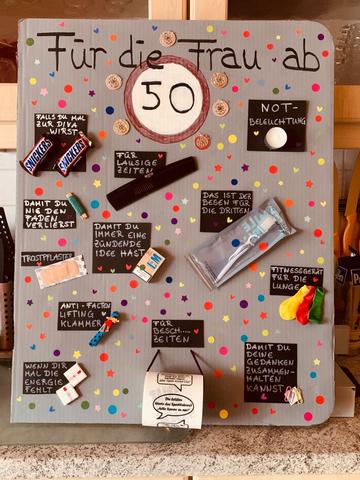 Für die Frau ab
50
FALLS DU MAL
ZUR DIVA
WIRST
SNICKERS
SNICKERS
NOT-
BELEUCHTUNG
FÜR
LAUSIGE
ZEITEN
DAMIT DU
NIE DEN
FADEN
VERLIERST
DAS IST DER
BESEN FÜR
DIE DRITTEN
DAMIT DU
IMMER EINE
ZÜNDENDE
IDEE HAST
TROSTPFLASTER
FITNESSGERÄT
FÜR DIE
LUNGE
ANTI-FALTEN
LIFTING
KLAMMER
FÜR
BESCH....
ZEITEN
DAMIT DU
DEINE
GEDANKEN
ZUSAMMEN-
HALTEN
KANNST
WENN DIR
MAL DIE
ENERGIE
FEHLT